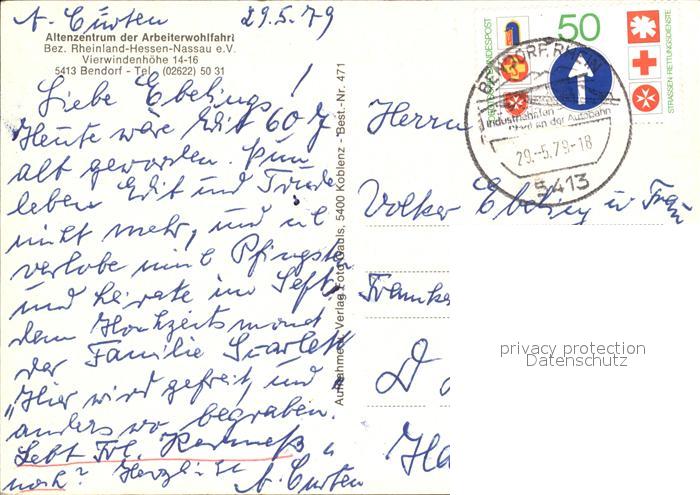 A. Cürten 29.5.79
Altenzentrum der Arbeiterwohlfahrt
Bez. Rheinland-Hessen-Nassau e.V.
Vierwindenhöhe 14-16
5413 Bendorf - Tel. (02622) 50 31
Liebe Ebelings!
Heute wäre Edit 60 J
alt geworden. Nun
leben Edit und
nicht mehr, und ich
verlobe mich Pfingsten
und heirate im Sept.
dem Hochzeitsmonat
der Familie Scarlett
„Hier wird gefreit, und
anderswo begraben.
Lebt Frl. "
noch? Herzlichst A. Cürten
Aufnahme u. Verlag Foto Gauls, 5400 Koblenz - Best.-Nr. 471
DEUTSCHE BUNDESPOST
50
STRASSEN-RETTUNGSDIENSTE
BENDORF, RHEIN
Industriehafen
an der Autobahn
29.-5.79-18
5413
Herrn
Volker Ebeling u Frau
D
Ha
privacy protection
Datenschutz